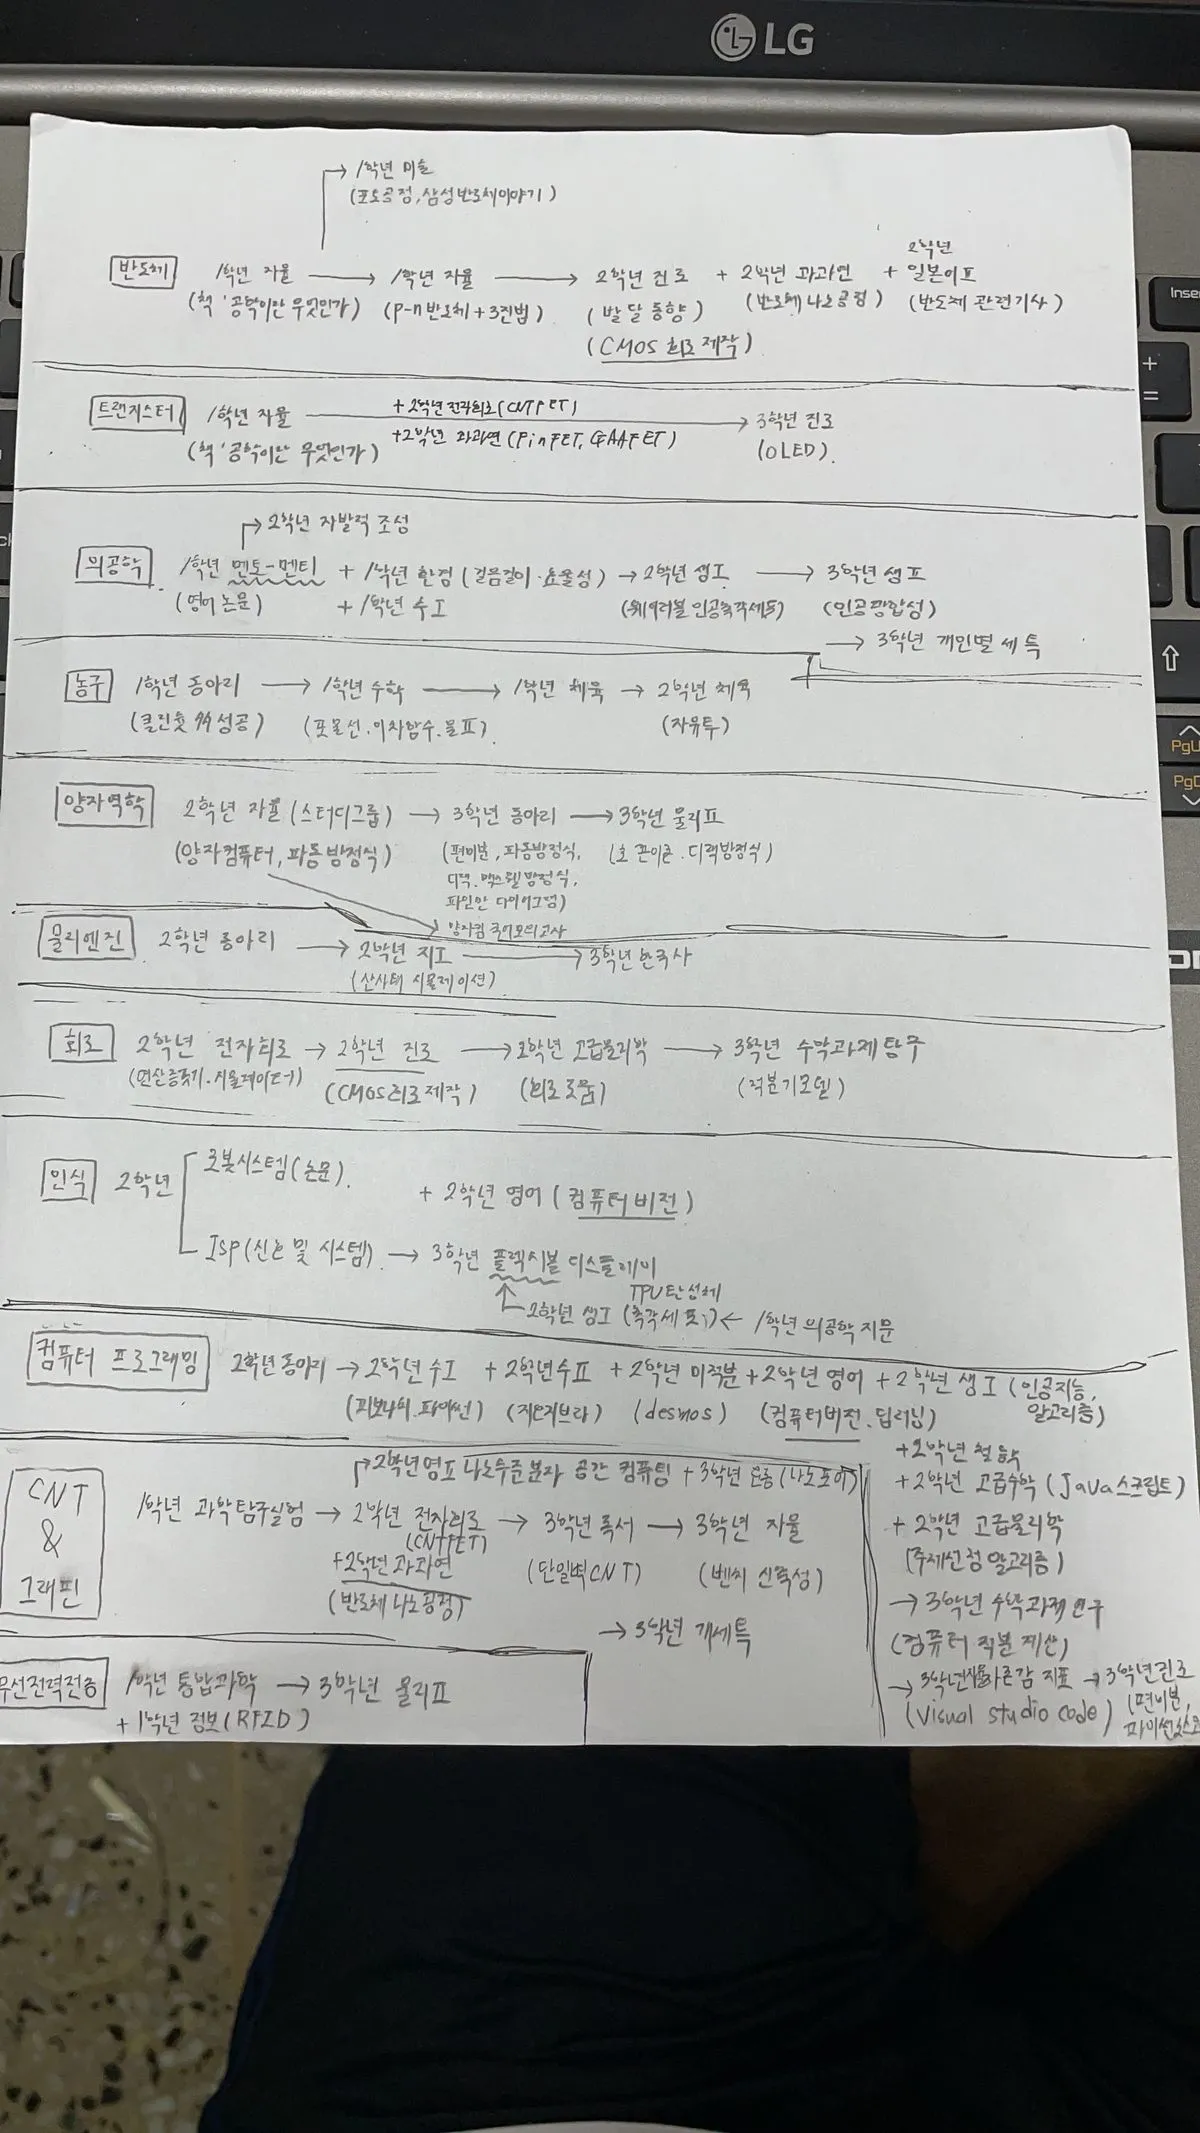 LG
Inser
+
=
PgU
PgD
→ 1학년 미술
(포토공정, 삼성반도체이야기)
반도체 1학년 자율 → 1학년 자율 → 2학년 진로 + 2학년 과과연 + 2학년 일본어Ⅱ
(책 '공학이란 무엇인가) (p-n반도체+3진법) (발달 동향) (반도체 나노공정) (반도체 관련기사)
(CMOS 회로 제작)
트랜지스터 1학년 자율 +2학년 전자회로(CNTFET) → 3학년 진로
(책 '공학이란 무엇인가) +2학년 과과연 (FinFET, GAAFET) (OLED)
→ 2학년 자발적 조성
의공학 1학년 멘토-멘티 + 1학년 한검(걸음걸이·효율성) → 2학년 생Ⅰ → 3학년 생Ⅱ
(영어 논문) + 1학년 수Ⅰ (웨어러블 인공촉각세포) (인공광합성)
→ 3학년 개인별 세특
농구 1학년 동아리 → 1학년 수학 → 1학년 체육 → 2학년 체육
(클린슛 성공) (포물선·이차함수·물Ⅱ) (자유투)
양자역학 2학년 자율(스터디그룹) → 3학년 동아리 → 3학년 물리Ⅱ
(양자컴퓨터, 파동방정식) (편미분, 파동방정식, (호킹이론·디랙방정식)
디랙·맥스웰방정식,
파인만 다이어그램)
양자컴 국어모의고사
물리엔진 2학년 동아리 → 2학년 지Ⅰ → 3학년 한국사
(산사태 시뮬레이션)
회로 2학년 전자회로 → 2학년 진로 → 2학년 고급물리학 → 3학년 수학과제탐구
(연산증폭기·시뮬레이터) (CMOS회로제작) (회로도움) (적분기모델)
인식 2학년 로봇시스템(논문)
+ 2학년 영어(컴퓨터비전)
ISP(신호 및 시스템) → 3학년 플렉시블 디스플레이
TPU탄성체
2학년 생Ⅰ (촉각세포) ← 1학년 의공학지문
컴퓨터 프로그래밍 2학년동아리 → 2학년 수Ⅰ + 2학년수Ⅱ + 2학년 미적분 + 2학년 영어 + 2학년 생Ⅰ (인공지능,
알고리즘)
(피보나치·파이썬) (지오지브라) (desmos) (컴퓨터비전·딥러닝)
+2학년 철학
→ 2학년영Ⅱ 나노수준분자 공간 컴퓨팅 + 3학년 (나노로어) + 2학년 고급수학 (Java스크립트)
CNT
&
그래핀
1학년 과학탐구실험 → 2학년 전자회로 → 3학년 독서 → 3학년 자율
(CNTFET)
+2학년 과과연 (단일벽CNT) (벤치 신축성)
(반도체나노공정)
→ 3학년 개세특
+ 2학년 고급물리학
(주제선정 알고리즘)
→ 3학년 수학과제연구
(컴퓨터 적분 계산)
→ 3학년 지표 → 3학년진로
(visual studio code) (편미분,
무선전력전송 1학년 통합과학 → 3학년 물리Ⅱ
+ 1학년 정보(RFID)